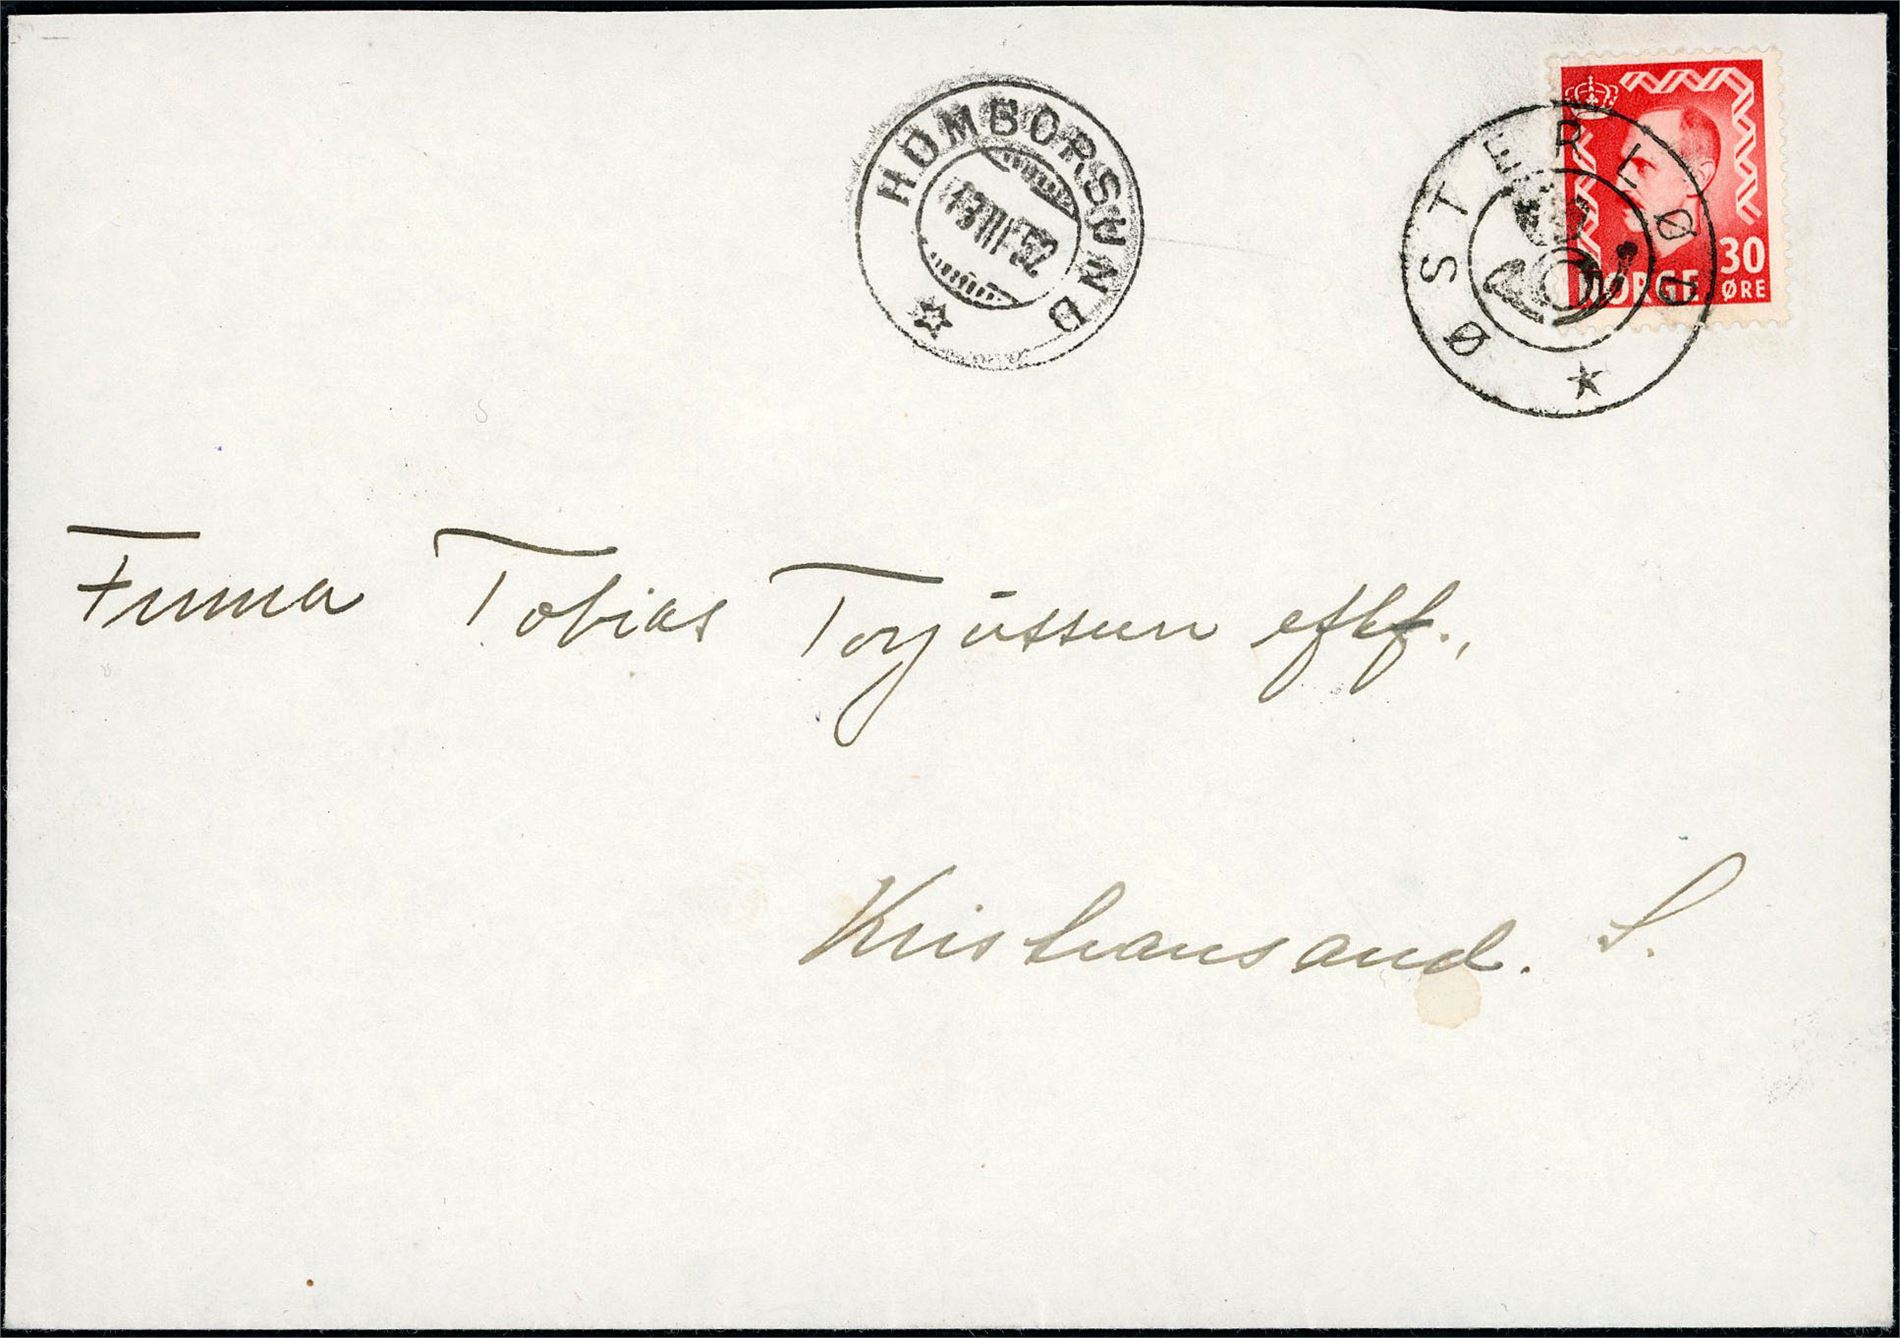 HOMBORSUND
ØSTERLØØ
30
NORGE ØRE
Firma Tobias Torjussen eftf.,
Kristiansand. S.